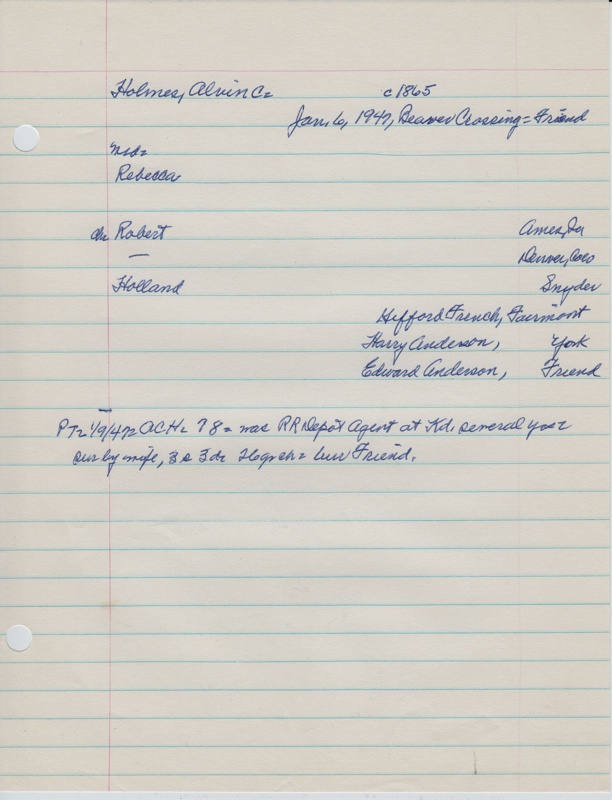 Holmes, Alvin C= c1865
Jan. 6, 1947, Beaver Crossing = Friend
md=
Rebecca
ch= Robert Ames, Ia
— Denver, Colo
Holland Snyder
Gifford French, Fairmont
Harry Anderson, York
Edward Anderson, Friend
PT= 1/9/47= ACH= 78= was RR Depot Agent at Kd. several yrs=
sur by wife, 3s 3d= 26 grch= bur Friend.